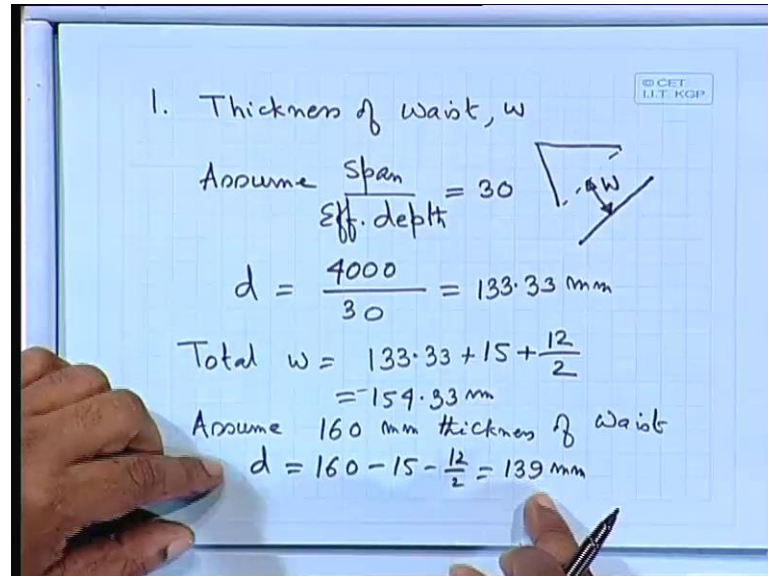 © CET
I.I.T. KGP
1. Thickness of waist, w
Assume Span / Eff. depth = 30
w
d = 4000 / 30 = 133.33 mm
Total w = 133.33 + 15 + 12/2
= 154.33 mm
Assume 160 mm thickness of waist
d = 160 - 15 - 12/2 = 139 mm